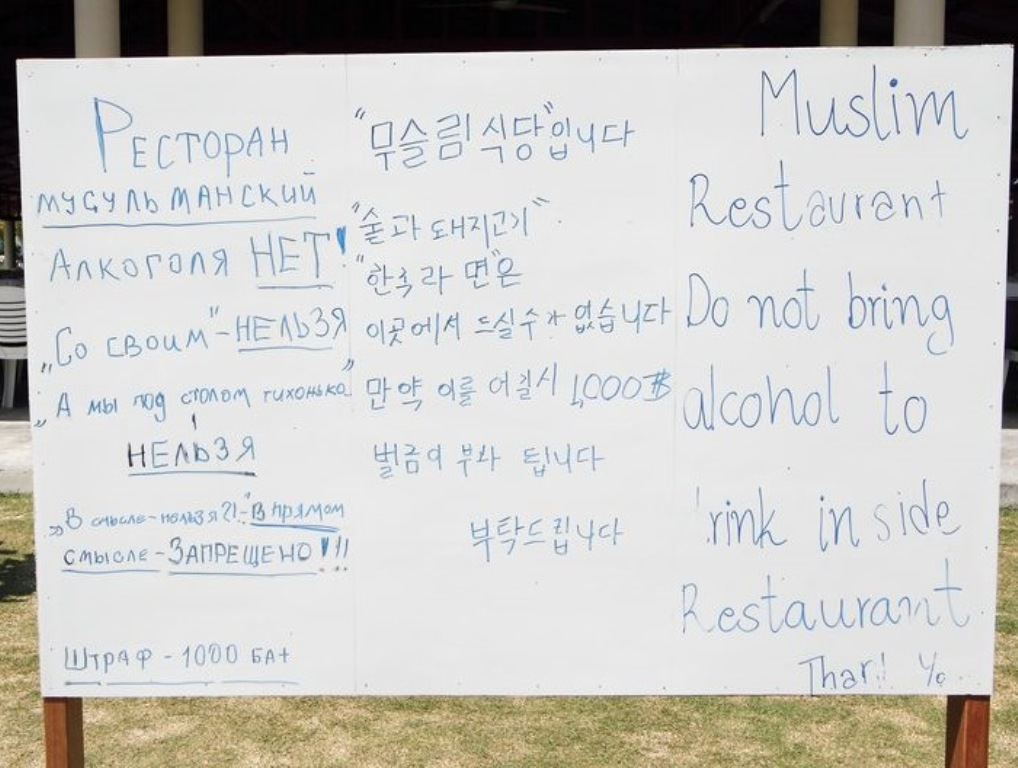 Ресторан
мусульманский
Алкоголя НЕТ!
„Со своим" - НЕЛЬЗЯ
„А мы под столом тихонько"
НЕЛЬЗЯ
„В смысле-нельзя?!"-В прямом
смысле-ЗАПРЕЩЕНО!!!
Штраф - 1000 бат
"무슬림 식당"입니다
"술과 돼지고기"
"한국라면"은
이곳에서 드실수가 없습니다
만약 이를 어길시 1,000฿
벌금이 부과 됩니다
부탁드립니다
Muslim
Restaurant
Do not bring
alcohol to
rink inside
Restaurant